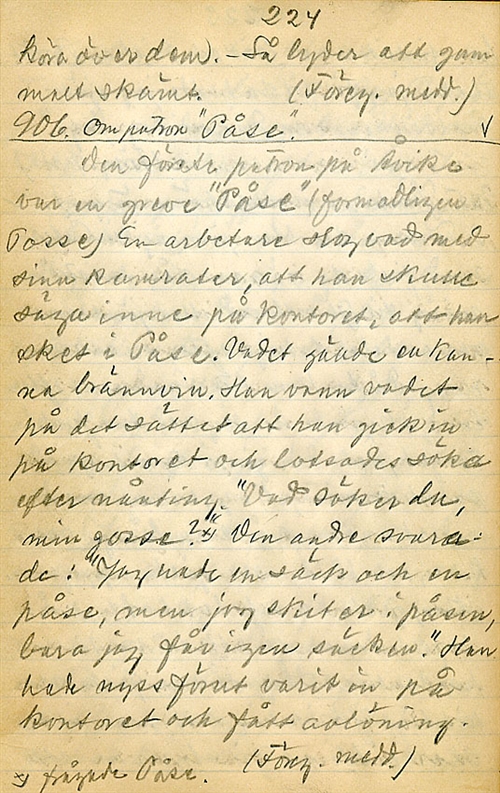 224
köra över dem). - Så lyder ett gam
malt skämt. (Föreg. medd.)
906. Om patron "Påse".
Den förste patron på Åvike
var en greve "Påse" (formodligen
Posse) En arbetare slog vad med
sina kamrater, att han skulle
säga inne på kontoret, att han
sket i Påse. Vadet gällde en kan-
na brännvin. Han vann vadet
på det sättet att han gick in
på kontoret och lotsades söka
efter nånting. "Vad söker du,
min gosse?" x) Den andre svara-
de: "Jag hade en säck och en
påse, men jag skiter i påsen,
bara jag får igen säcken." Han
hade nyss förut varit in på
kontoret och fått avlöning.
(Föreg. medd.)
x) frågade Påse.